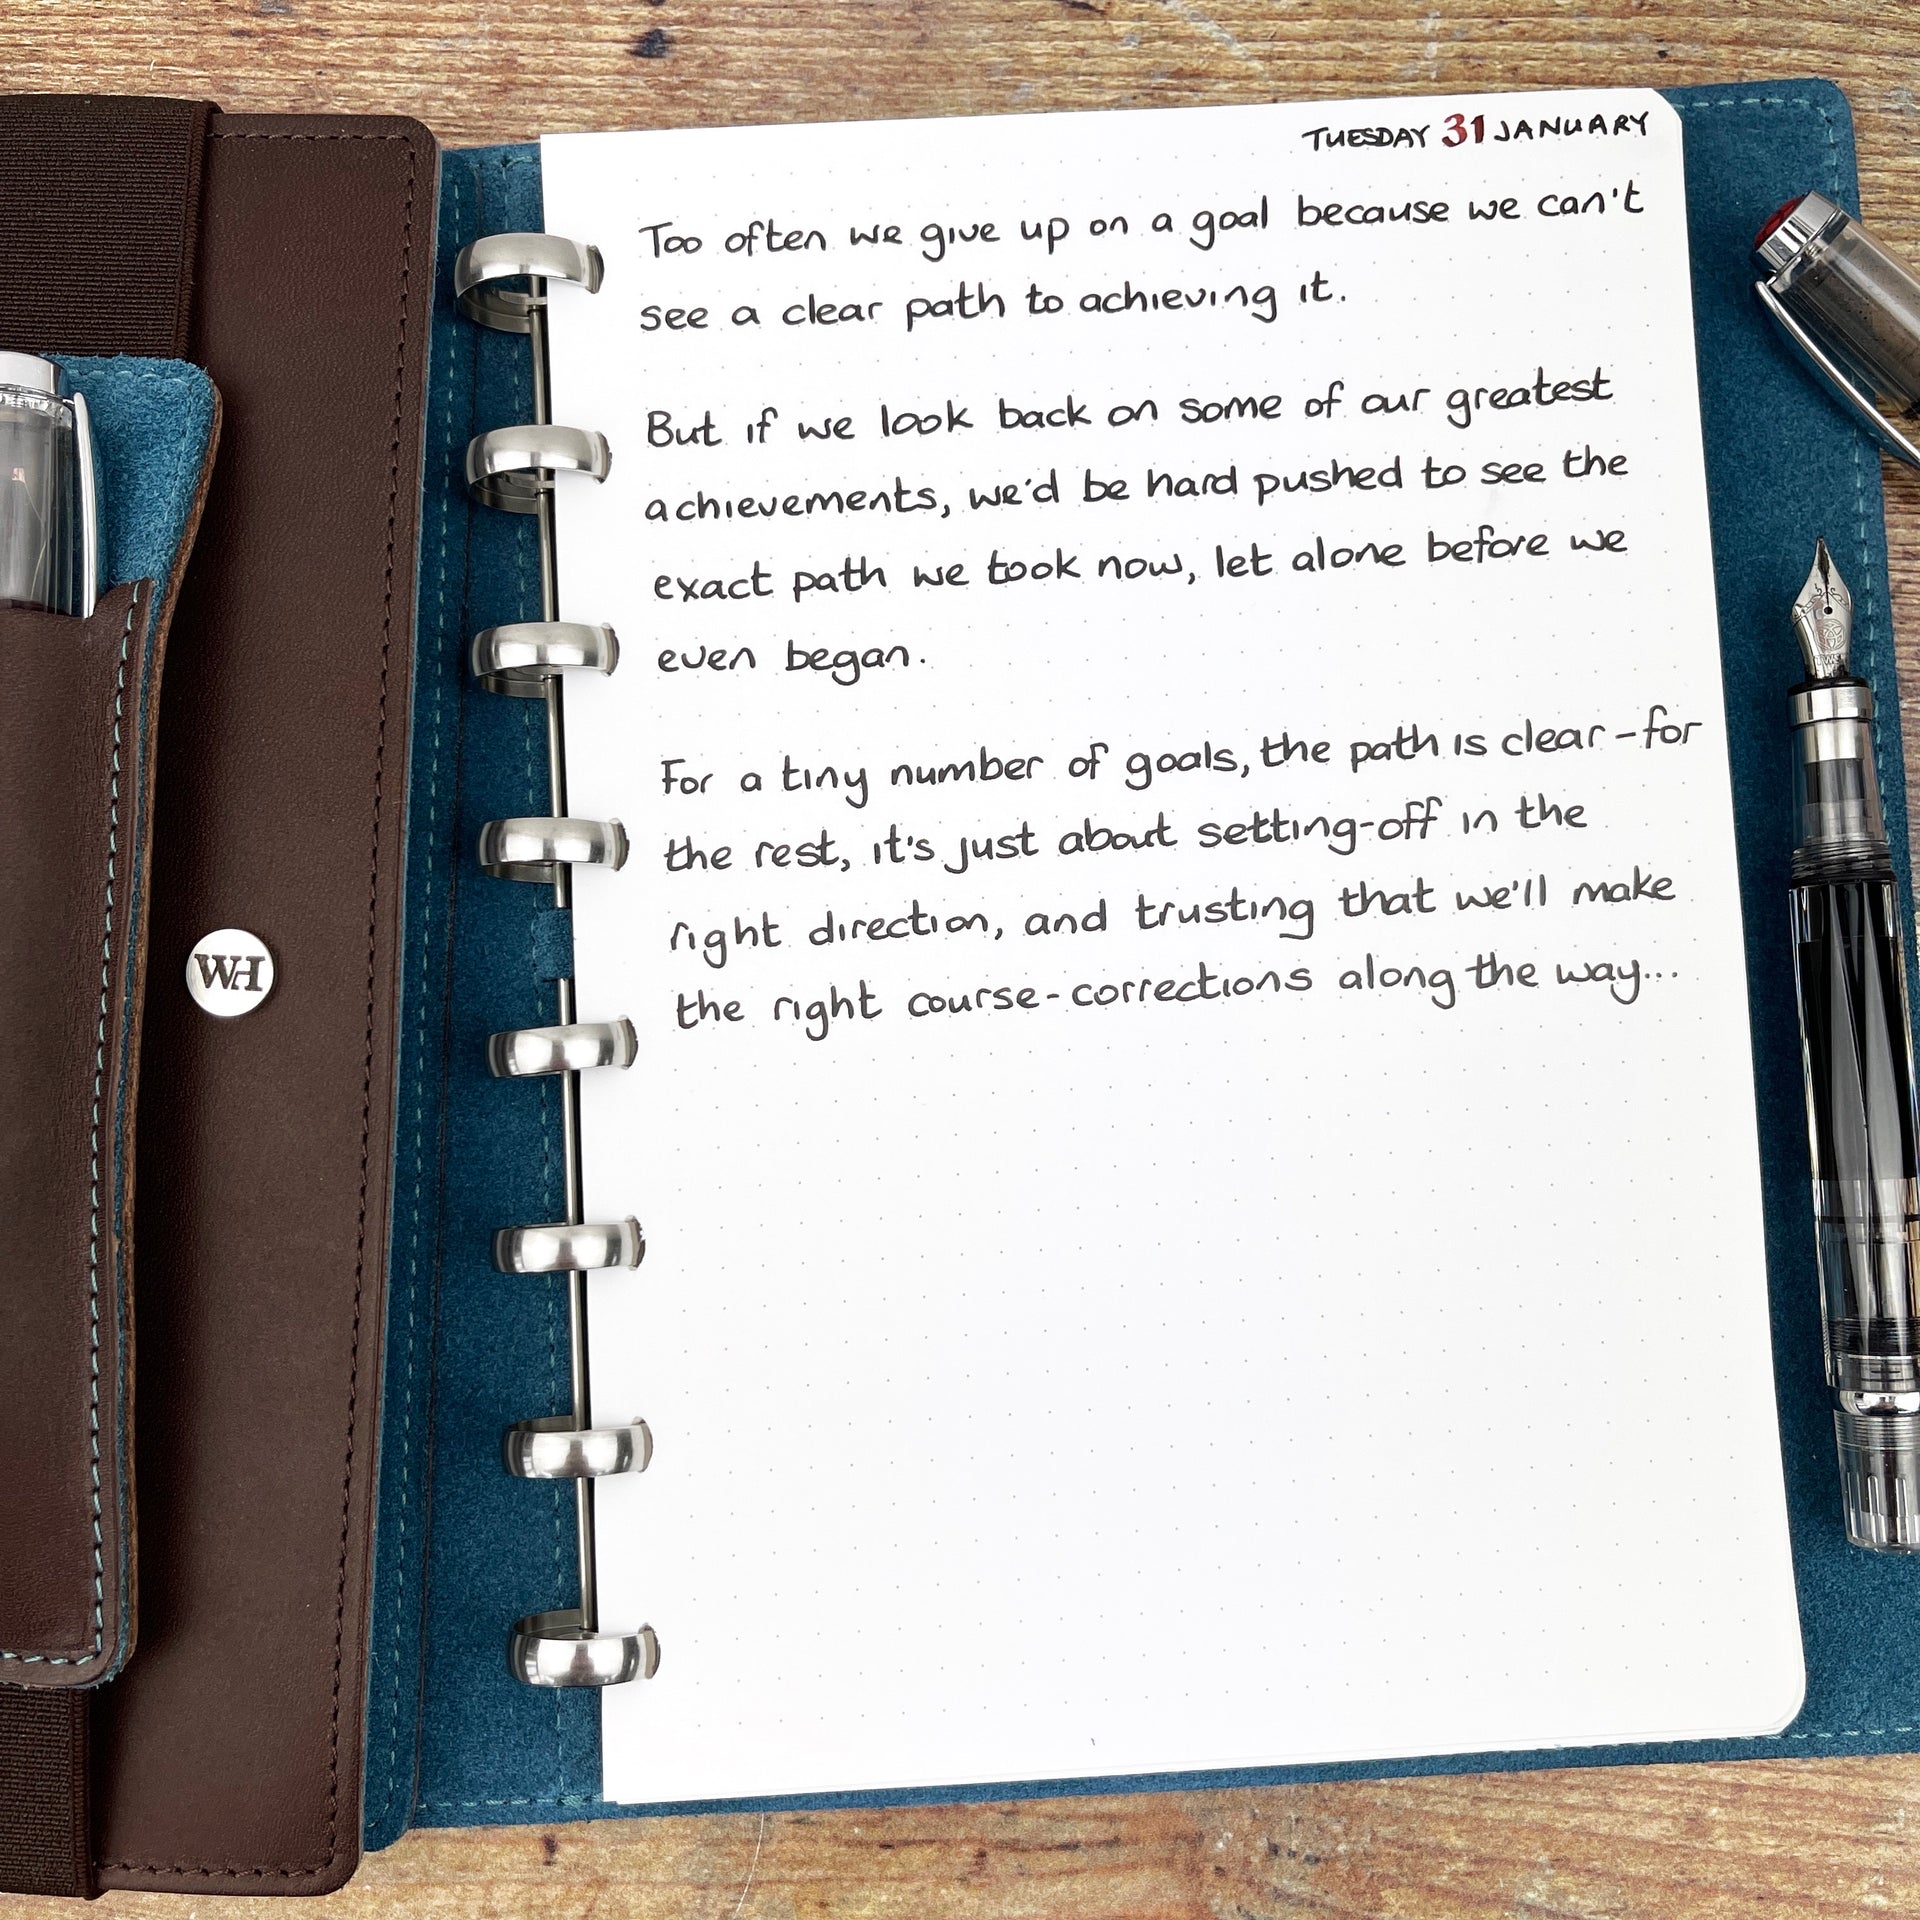 TUESDAY 31 JANUARY
Too often we give up on a goal because we can't
see a clear path to achieving it.
But if we look back on some of our greatest
achievements, we'd be hard pushed to see the
exact path we took now, let alone before we
even began.
For a tiny number of goals, the path is clear - for
the rest, it's just about setting-off in the
right direction, and trusting that we'll make
the right course-corrections along the way...
WH